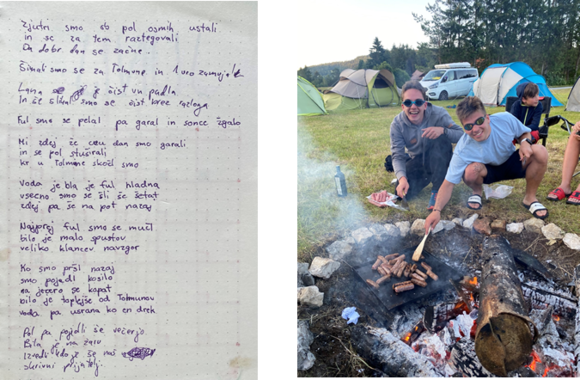 Zjutri smo ob pol osmih ustali
in se za tem raztegovali
Da dobr dan se začne
smo se za Tolmune in 1 uro
Lana je čist vn padla
In še smo se čist brez razloga
Ful smo se pelal pa garal in sonce žgalo
Mi zdej že celu dan smo garali
in se pol stuširali
kr u Tolmune skočl smo
Voda je bla je ful hladna
vseeno smo se šli še šetat
zdej pa še na pot nazaj
Najprej ful smo se mučl
bilo je malo spustov
veliko klancev navzgor
Ko smo pršl nazaj
smo pojedl kosilo
na jezero se kopat
bilo je toplejše od Tolmunov
voda pa usrana ko en drek
Pol pa pojedli še večerjo
Bila je na žaru
kdo je še moj
skrivni prijatelj.